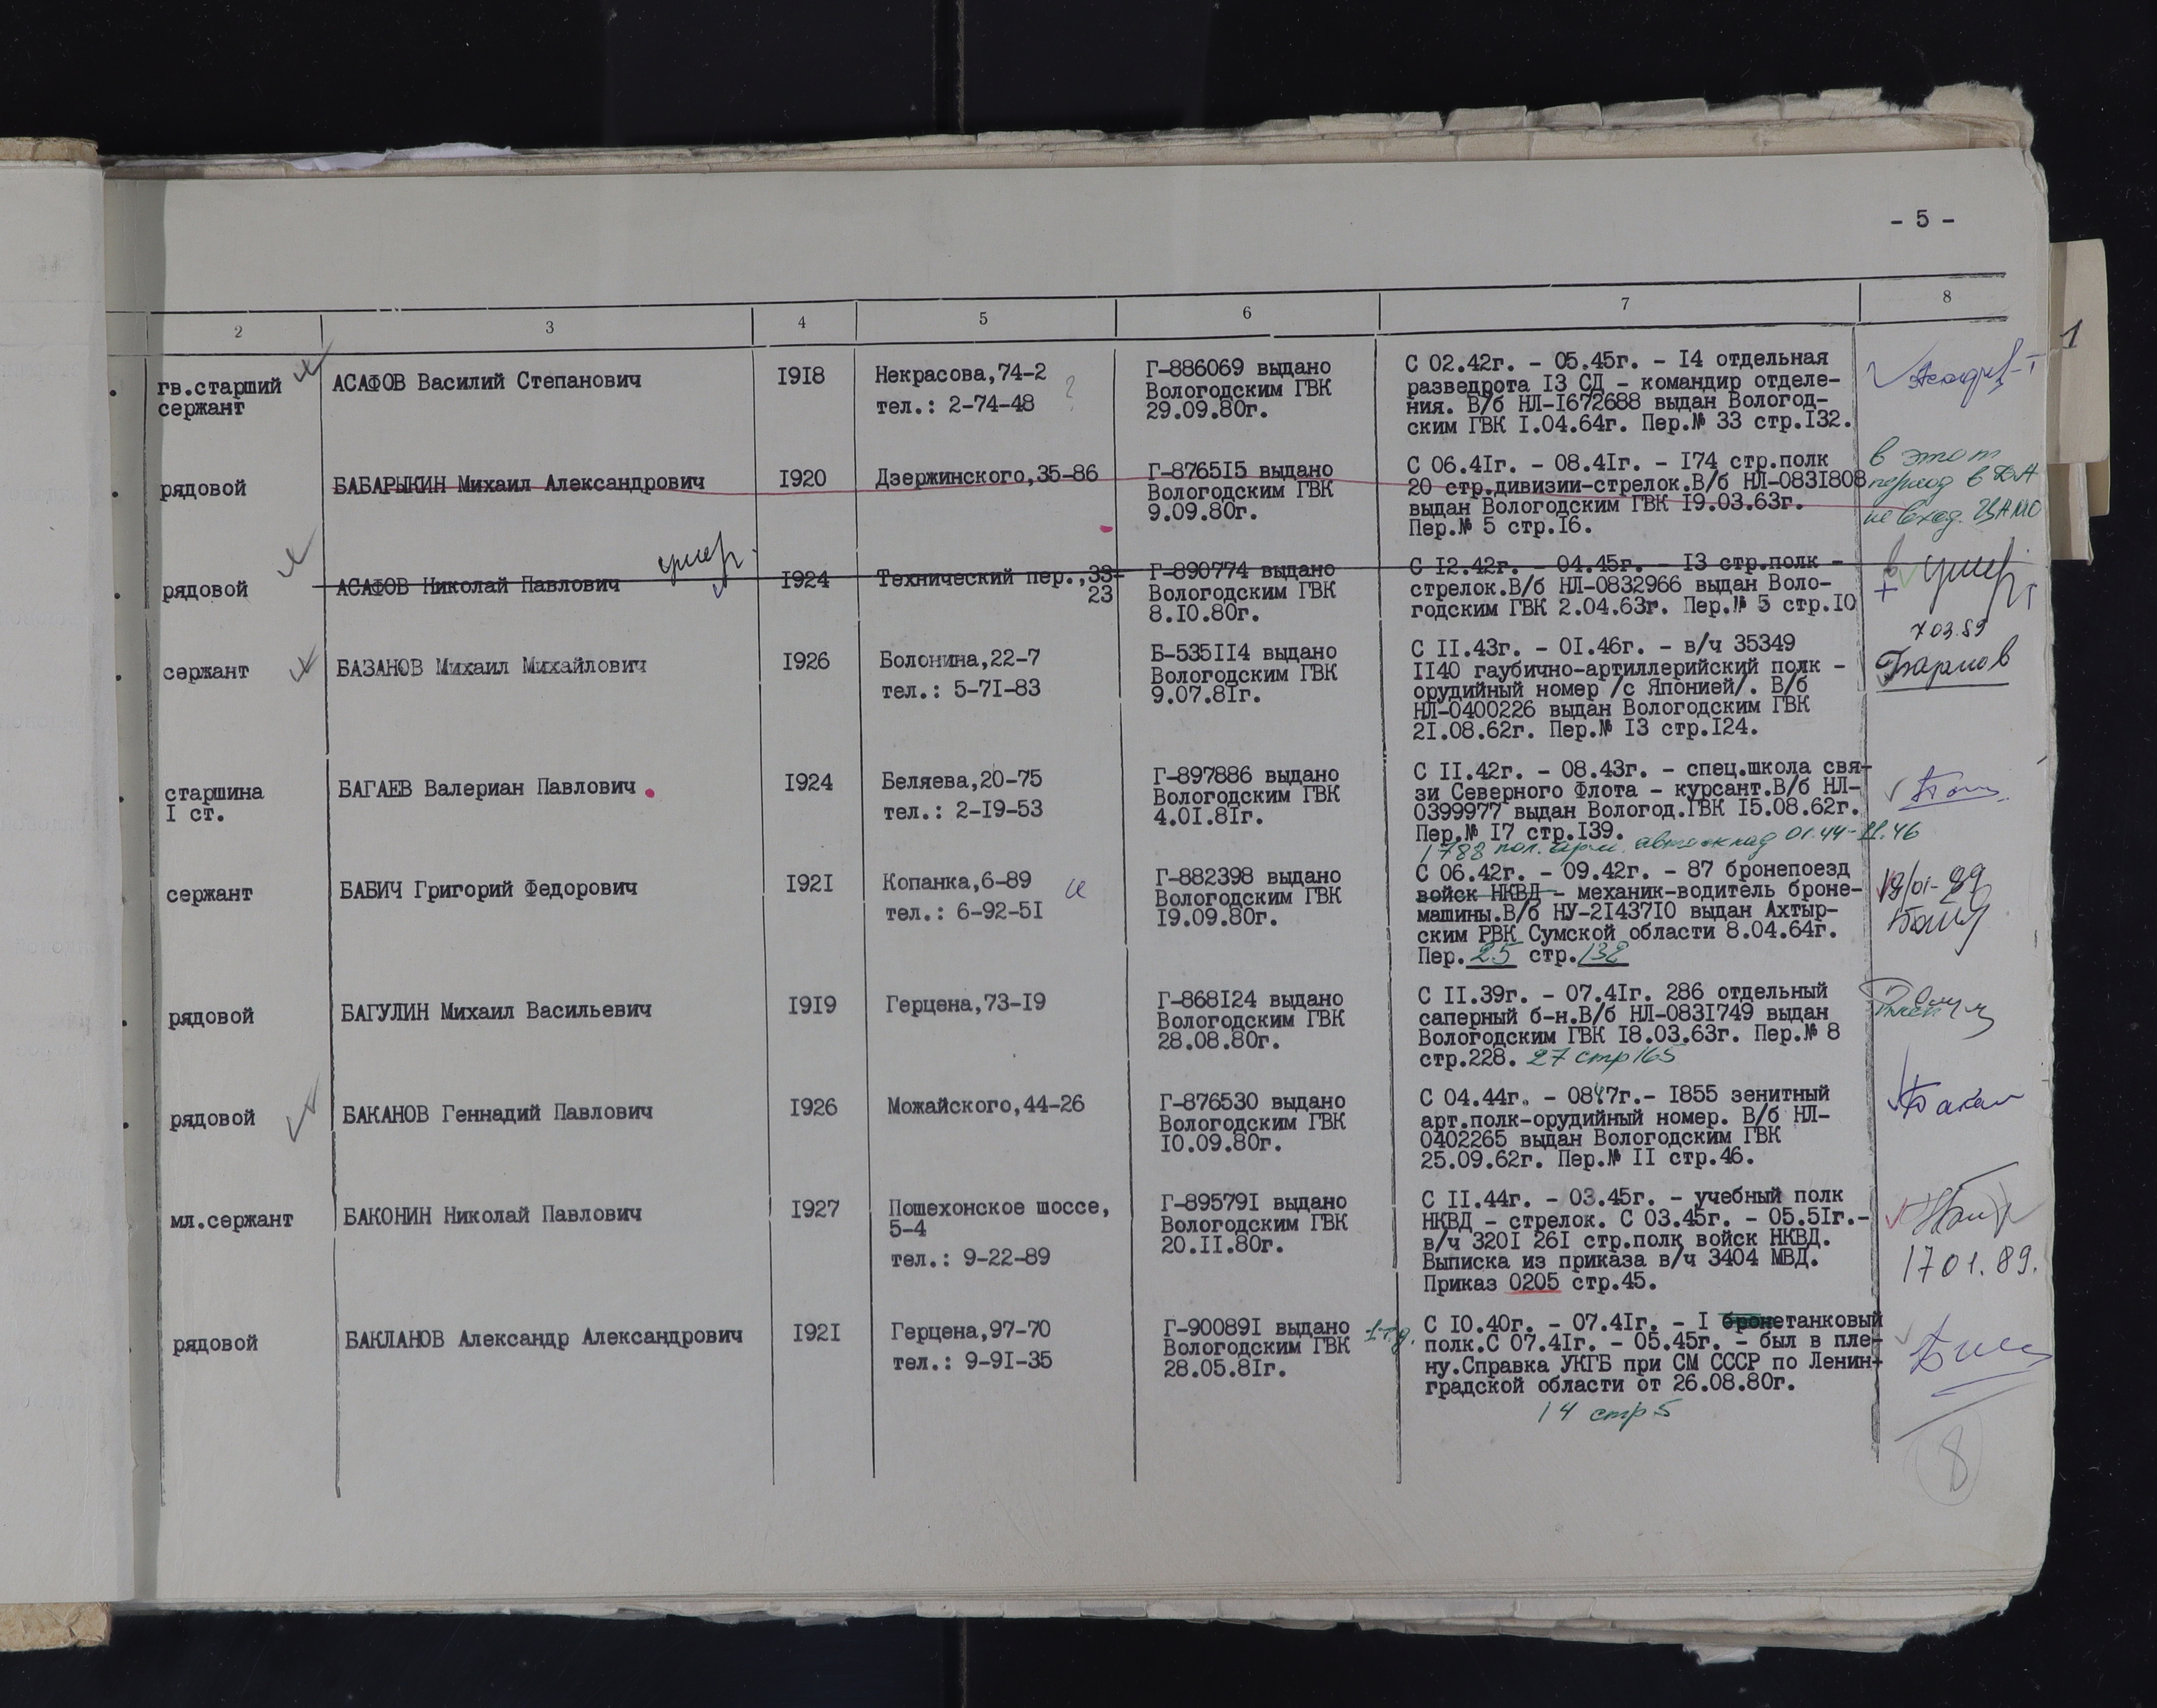 - 5 -
2 3 4 5 6 7 8
1
гв.старший
сержант
АСАФОВ Василий Степанович
I9I8
Некрасова,74-2
тел.: 2-74-48
?
Г-886069 выдано
Вологодским ГВК
29.09.80г.
С 02.42г. - 05.45г. - I4 отдельная
разведрота I3 СД - командир отделе-
ния. В/б НЛ-I672688 выдан Вологод-
ским ГВК I.04.64г. Пер.№ 33 стр.I32.
рядовой
БАБАРЫКИН Михаил Александрович
I920
Дзержинского,35-86
Г-8765I5 выдано
Вологодским ГВК
9.09.80г.
С 06.4Iг. - 08.4Iг. - I74 стр.полк
20 стр.дивизии-стрелок.В/б НЛ-083I808
выдан Вологодским ГВК I9.03.63г.
Пер.№ 5 стр.I6.
в этот
период в ДА
не вход. ЦАМО
рядовой
АСАФОВ Николай Павлович
умер
I924
Технический пер.,33-
23
Г-890774 выдано
Вологодским ГВК
8.I0.80г.
С I2.42г. - 04.45г. - I3 стр.полк -
стрелок.В/б НЛ-0832966 выдан Воло-
годским ГВК 2.04.63г. Пер.№ 5 стр.I0
умер
сержант
БАЗАНОВ Михаил Михайлович
I926
Болонина,22-7
тел.: 5-7I-83
Б-535II4 выдано
Вологодским ГВК
9.07.8Iг.
С II.43г. - 0I.46г. - в/ч 35349
II40 гаубично-артиллерийский полк -
орудийный номер /с Японией/. В/б
НЛ-0400226 выдан Вологодским ГВК
2I.08.62г. Пер.№ I3 стр.I24.
7 03.89
старшина
I ст.
БАГАЕВ Валериан Павлович
I924
Беляева,20-75
тел.: 2-I9-53
Г-897886 выдано
Вологодским ГВК
4.0I.8Iг.
С II.42г. - 08.43г. - спец.школа свя-
зи Северного Флота - курсант.В/б НЛ-
0399977 выдан Вологод.ГВК I5.08.62г.
Пер.№ I7 стр.I39.
1788 пол. арм. автосклад 01.44-11.46
сержант
БАБИЧ Григорий Федорович
I92I
Копанка,6-89
тел.: 6-92-5I
Г-882398 выдано
Вологодским ГВК
I9.09.80г.
С 06.42г. - 09.42г. - 87 бронепоезд
войск НКВД - механик-водитель броне-
машины.В/б НУ-2I437I0 выдан Ахтыр-
ским РВК Сумской области 8.04.64г.
Пер. 25 стр.132
19/01-89
рядовой
БАГУЛИН Михаил Васильевич
I9I9
Герцена,73-I9
Г-868I24 выдано
Вологодским ГВК
28.08.80г.
С II.39г. - 07.4Iг. 286 отдельный
саперный б-н.В/б НЛ-083I749 выдан
Вологодским ГВК I8.03.63г. Пер.№ 8
стр.228. 27 стр 165
рядовой
БАКАНОВ Геннадий Павлович
I926
Можайского,44-26
Г-876530 выдано
Вологодским ГВК
I0.09.80г.
С 04.44г. - 0847г.- I855 зенитный
арт.полк-орудийный номер. В/б НЛ-
0402265 выдан Вологодским ГВК
25.09.62г. Пер.№ II стр.46.
мл.сержант
БАКОНИН Николай Павлович
I927
Пошехонское шоссе,
5-4
тел.: 9-22-89
Г-89579I выдано
Вологодским ГВК
20.II.80г.
С II.44г. - 03.45г. - учебный полк
НКВД - стрелок. С 03.45г. - 05.5Iг.-
в/ч 320I 26I стр.полк войск НКВД.
Выписка из приказа в/ч 3404 МВД.
Приказ 0205 стр.45.
17 01.89.
рядовой
БАКЛАНОВ Александр Александрович
I92I
Герцена,97-70
тел.: 9-9I-35
Г-90089I выдано
Вологодским ГВК
28.05.8Iг.
С I0.40г. - 07.4Iг. - I бронетанковый
полк.С 07.4Iг. - 05.45г. - был в пле-
ну.Справка УКГБ при СМ СССР по Ленин-
градской области от 26.08.80г.
14 стр 5
8